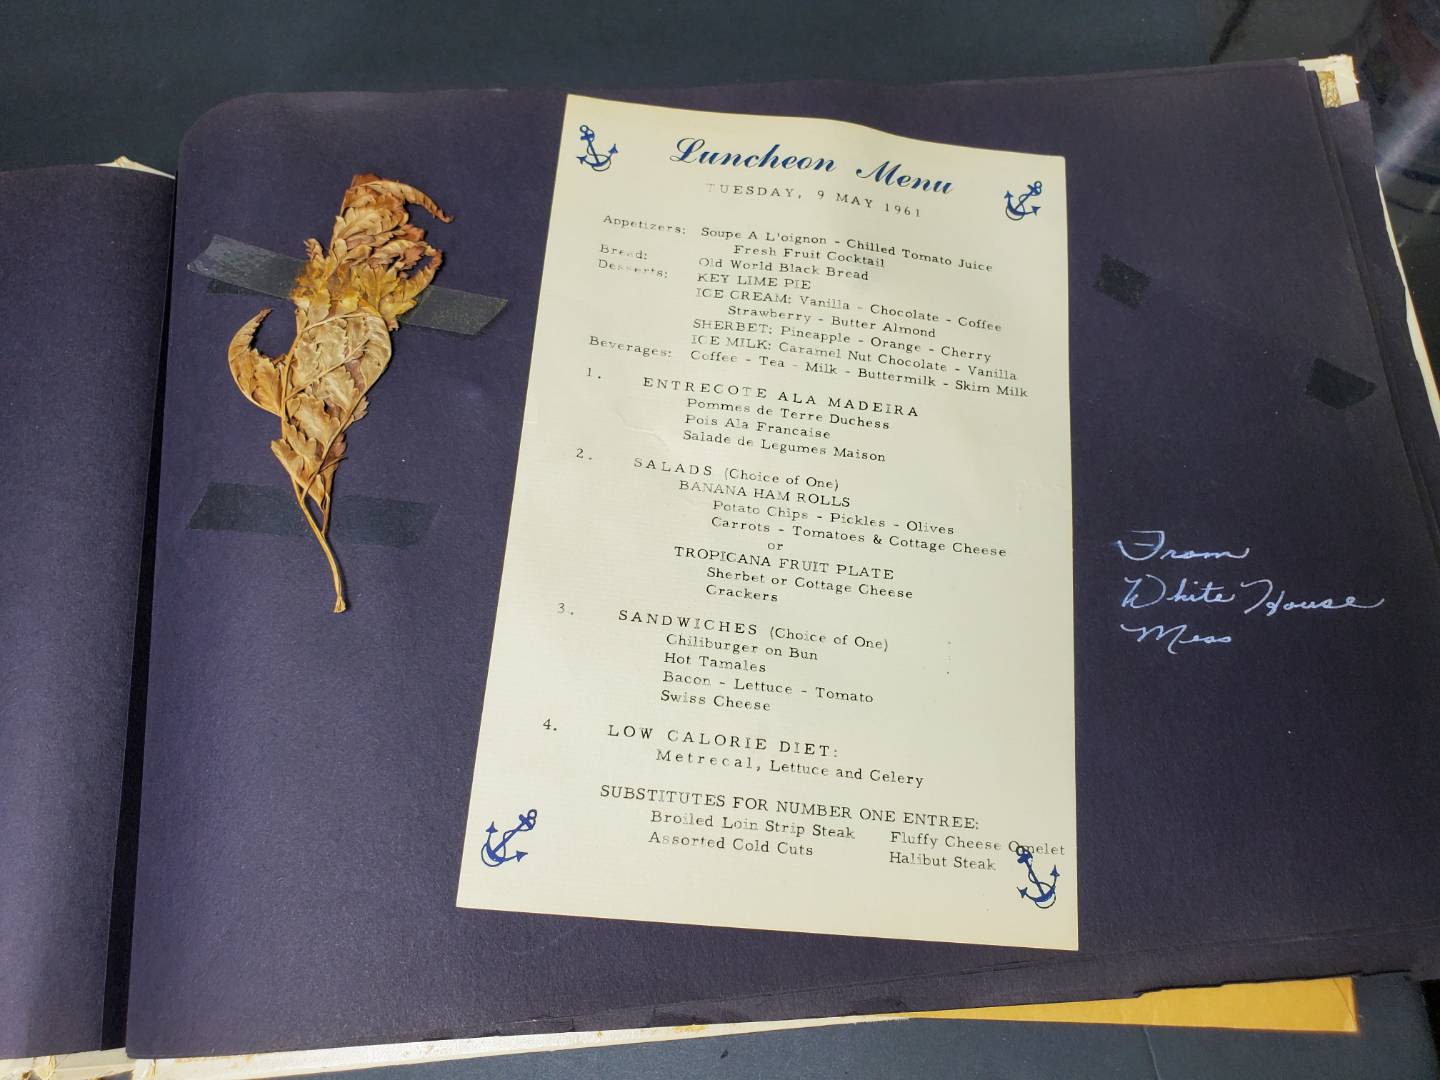 Luncheon Menu
TUESDAY, 9 MAY 1961
Appetizers: Soupe A L'oignon - Chilled Tomato Juice
Fresh Fruit Cocktail
Bread: Old World Black Bread
Desserts: KEY LIME PIE
ICE CREAM: Vanilla - Chocolate - Coffee
Strawberry - Butter Almond
SHERBET: Pineapple - Orange - Cherry
ICE MILK: Caramel Nut Chocolate - Vanilla
Beverages: Coffee - Tea - Milk - Buttermilk - Skim Milk
1. ENTRECOTE ALA MADEIRA
Pommes de Terre Duchess
Pois Ala Francaise
Salade de Legumes Maison
2. SALADS (Choice of One)
BANANA HAM ROLLS
Potato Chips - Pickles - Olives
Carrots - Tomatoes & Cottage Cheese
or
TROPICANA FRUIT PLATE
Sherbet or Cottage Cheese
Crackers
3. SANDWICHES (Choice of One)
Chiliburger on Bun
Hot Tamales
Bacon - Lettuce - Tomato
Swiss Cheese
4. LOW CALORIE DIET:
Metrecal, Lettuce and Celery
SUBSTITUTES FOR NUMBER ONE ENTREE:
Broiled Loin Strip Steak Fluffy Cheese Omelet
Assorted Cold Cuts Halibut Steak
From
White House
Mess